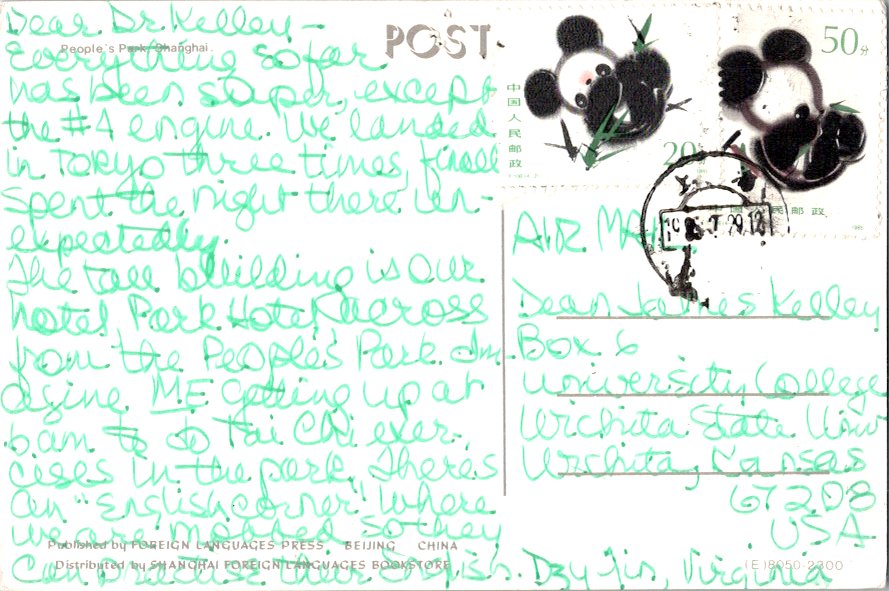 Dear Dr. Kelley –
People's Park, Shanghai.
Everything so far
has been super, except
the #4 engine. We landed
in Tokyo three times, finall
spent the night there un-
expectedly.
The tall building is our
hotel Park Hotel across
from the People's Park. Im-
agine ME getting up at
6am to do Tai Chi exer-
cises in the park. There's
an "English corner" where
we are mobbed so they
can practise their English. Dzy Jin, Virginia
Published by FOREIGN LANGUAGES PRESS BEIJING CHINA
Distributed by SHANGHAI FOREIGN LANGUAGES BOOKSTORE
POST
中国人民邮政
20分
50分
中国人民邮政
AIR MAIL
Dean James Kelley
Box 6
University College
Wichita State Univ
Wichita, Kansas
67208
USA
(E)8050-2300